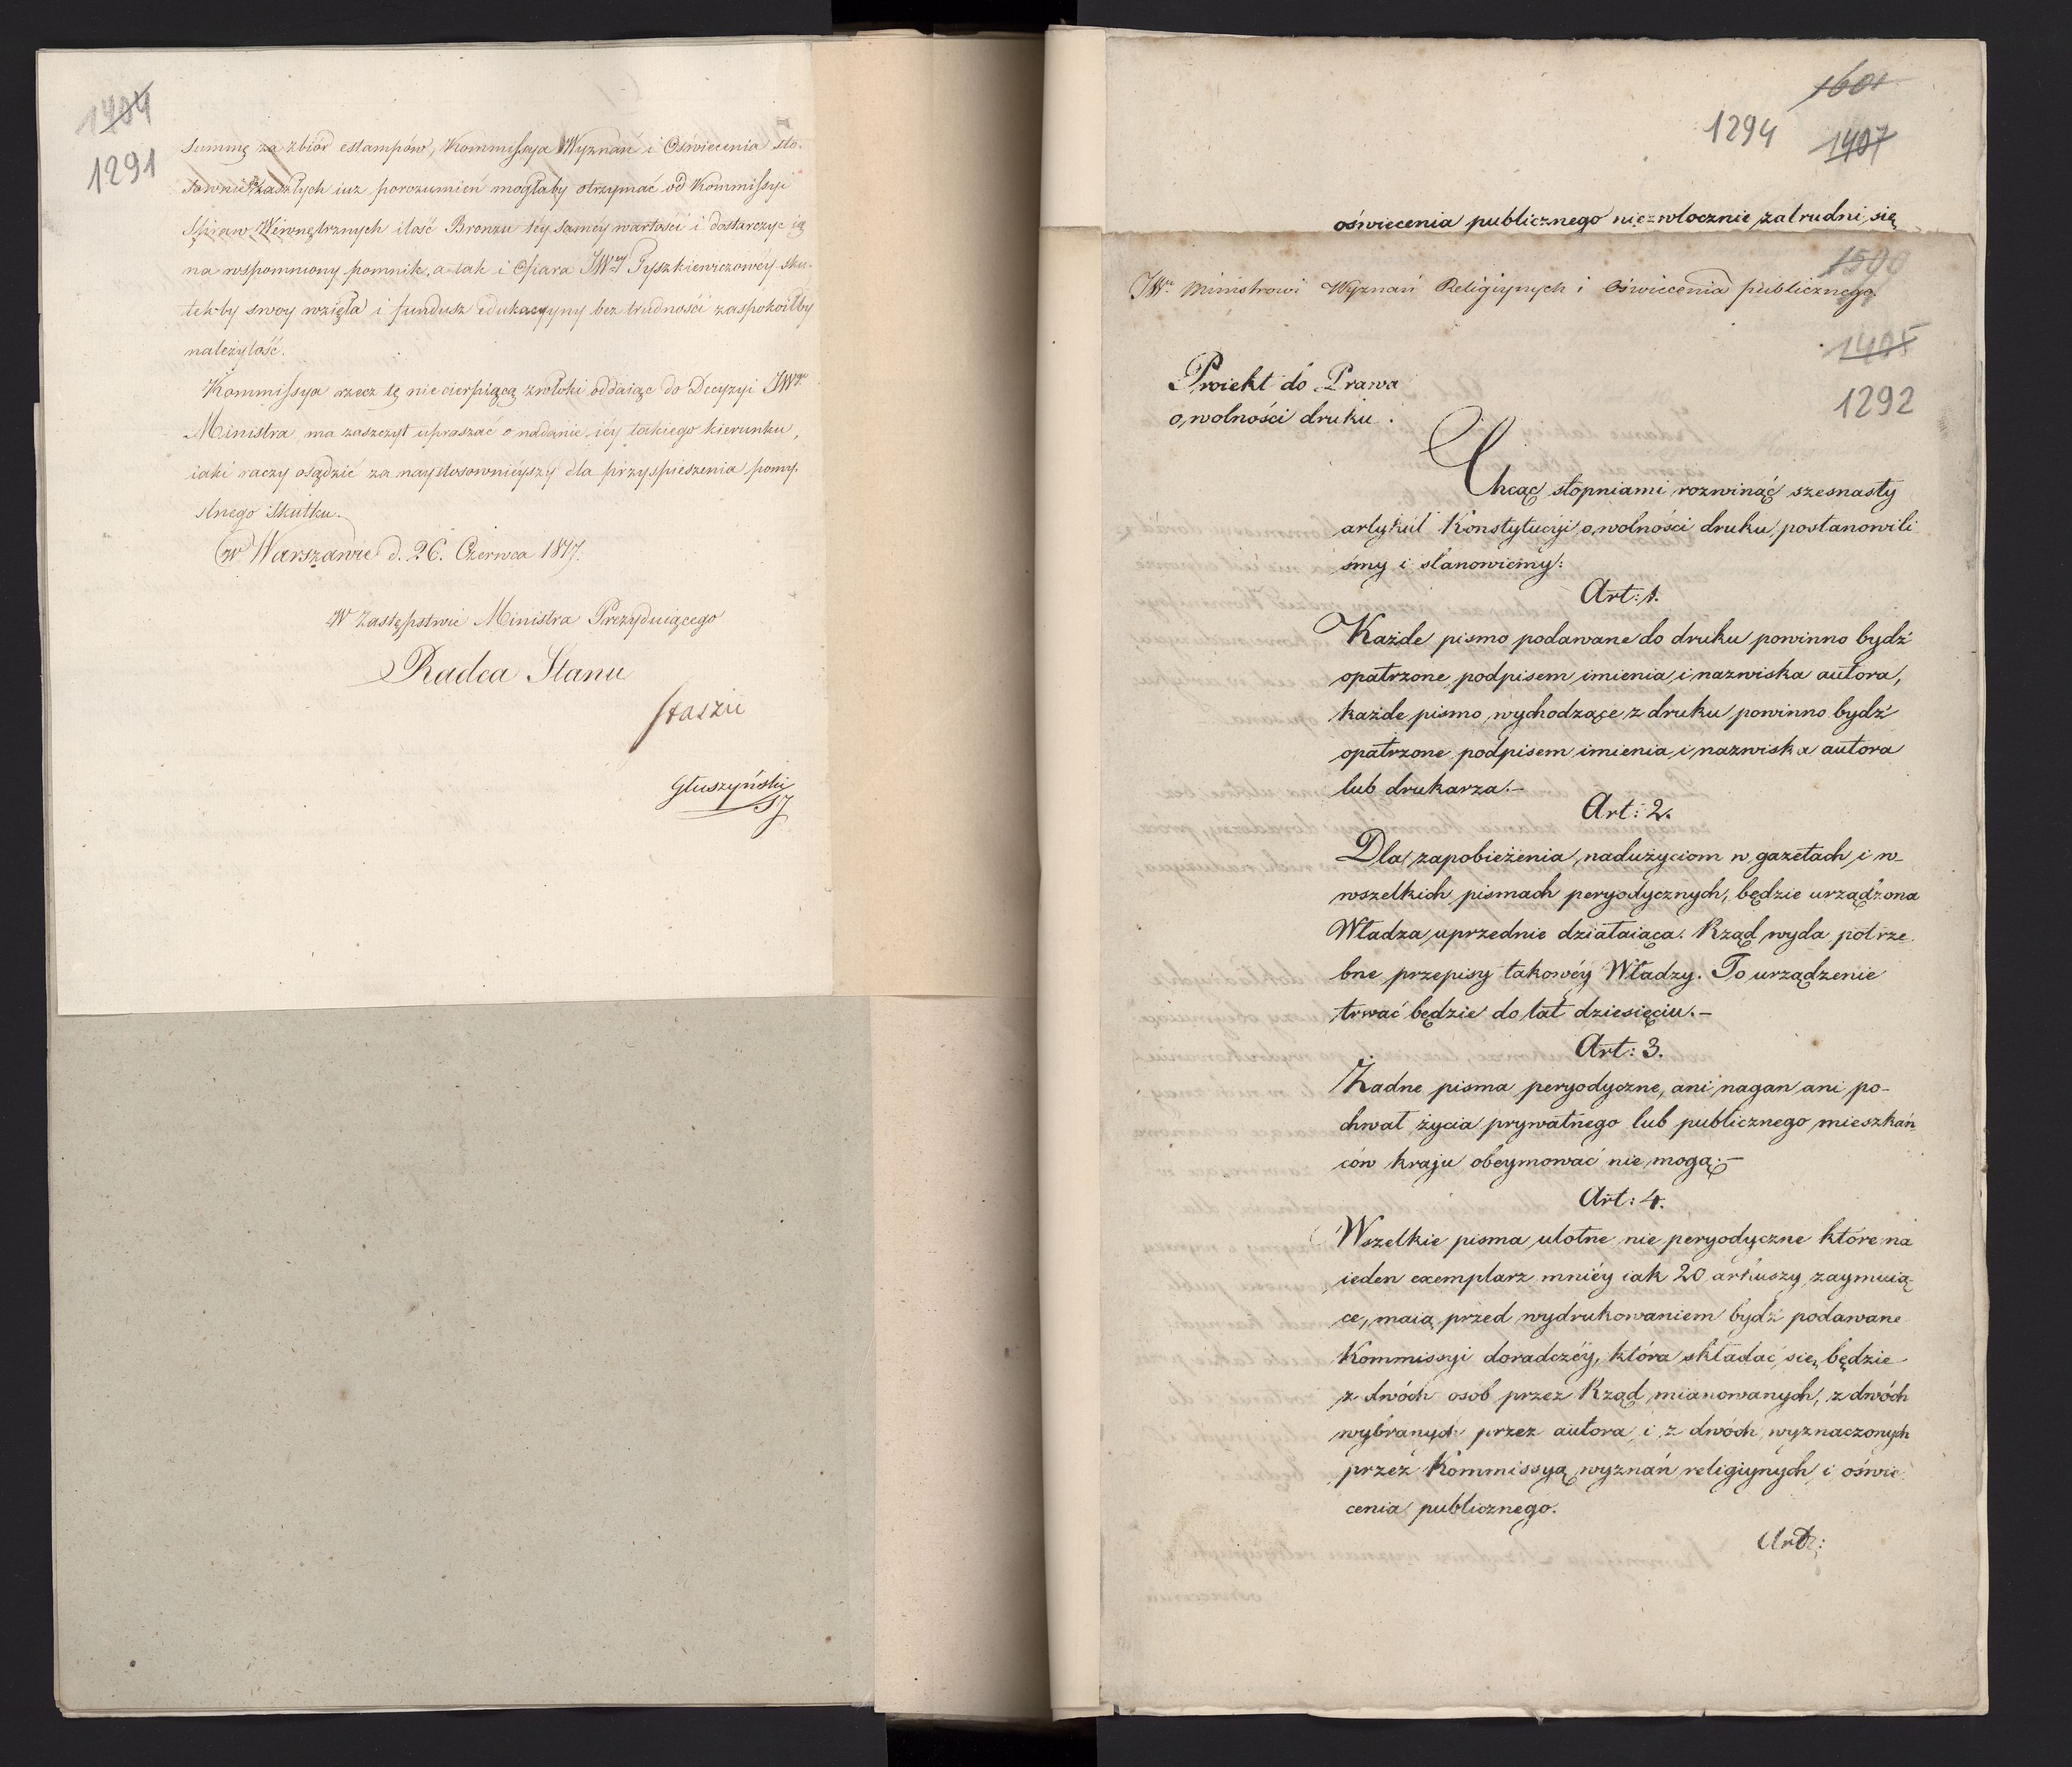 1404
1291
Summę za zbiór estampów, Kommissya Wyznań i Oświecenia sto-
sownie zaszłych iuż porozumień mogłaby otrzymać od Kommissyi
Spraw Wewnętrznych ilość Bronzu téy saméy wartości i dostarczyc ią
na wspomniony pomnik, a tak i Ofiara JWéy Tyszkiewiczowéy sku-
tek by swoy wzięła i fundusz edukacyyny bez trudności zaspokoiłby
należytość.
Kommissya rzecz tę nie cierpiącą zwłoki oddaiąc do Decyzyi JWgo
Ministra, ma zaszczyt upraszać o nadanie iéy takiego kierunku,
iaki raczy osądzić za naystosownieyszy dla przyspieszenia pomy-
slnego skutku.
w Warszawie d. 26. Czerwca 1817.
W Zastępstwie Ministra Prezyduiącego
Radca Stanu
Staszic
Głuszyński
SJ
1601
1294
1407
oświecenia publicznego niezwłocznie zatrudni się
1500
JWu Ministrowi Wyznań Religiynych i Oświecenia publicznego.
1405
1292
Proiekt do Prawa
o wolności druku.
Chcąc stopniami rozwinąć szesnasty
artykuł Konstytucyi o wolności druku, postanowili
śmy i stanowiemy:
Art: 1.
Każde pismo podawane do druku powinno bydź
opatrzone podpisem imienia i nazwiska autora,
każde pismo wychodzące z druku powinno bydź
opatrzone podpisem imienia i nazwiska autora
lub drukarza.-
Art: 2.
Dla zapobieżenia nadużyciom w gazetach i w-
wszelkich pismach peryodycznych, będzie urządzona
Władza uprzednie działaiąca. Rząd wyda potrze-
bne przepisy takowéy Władzy. To urządzenie
trwać będzie do lat dziesięciu.-
Art: 3.
Żadne pisma peryodyczne, ani nagan ani po-
chwał życia prywatnego lub publicznego mieszkań-
ców kraju obeymować nie mogą.-
Art: 4.
Wszelkie pisma ulotne nie peryodyczne które na
ieden exemplarz mniéy iak 20 arkuszy zaymuią-
ce, maią przed wydrukowaniem bydź podawane
Kommissyi doradczéy, która składać się będzie
z dwóch osób przez Rząd mianowanych, z dwóch
wybranych przez autora, i z dwóch wyznaczonych
przez Kommissyą wyznań religiynych i oświe-
cenia publicznego.
Art: